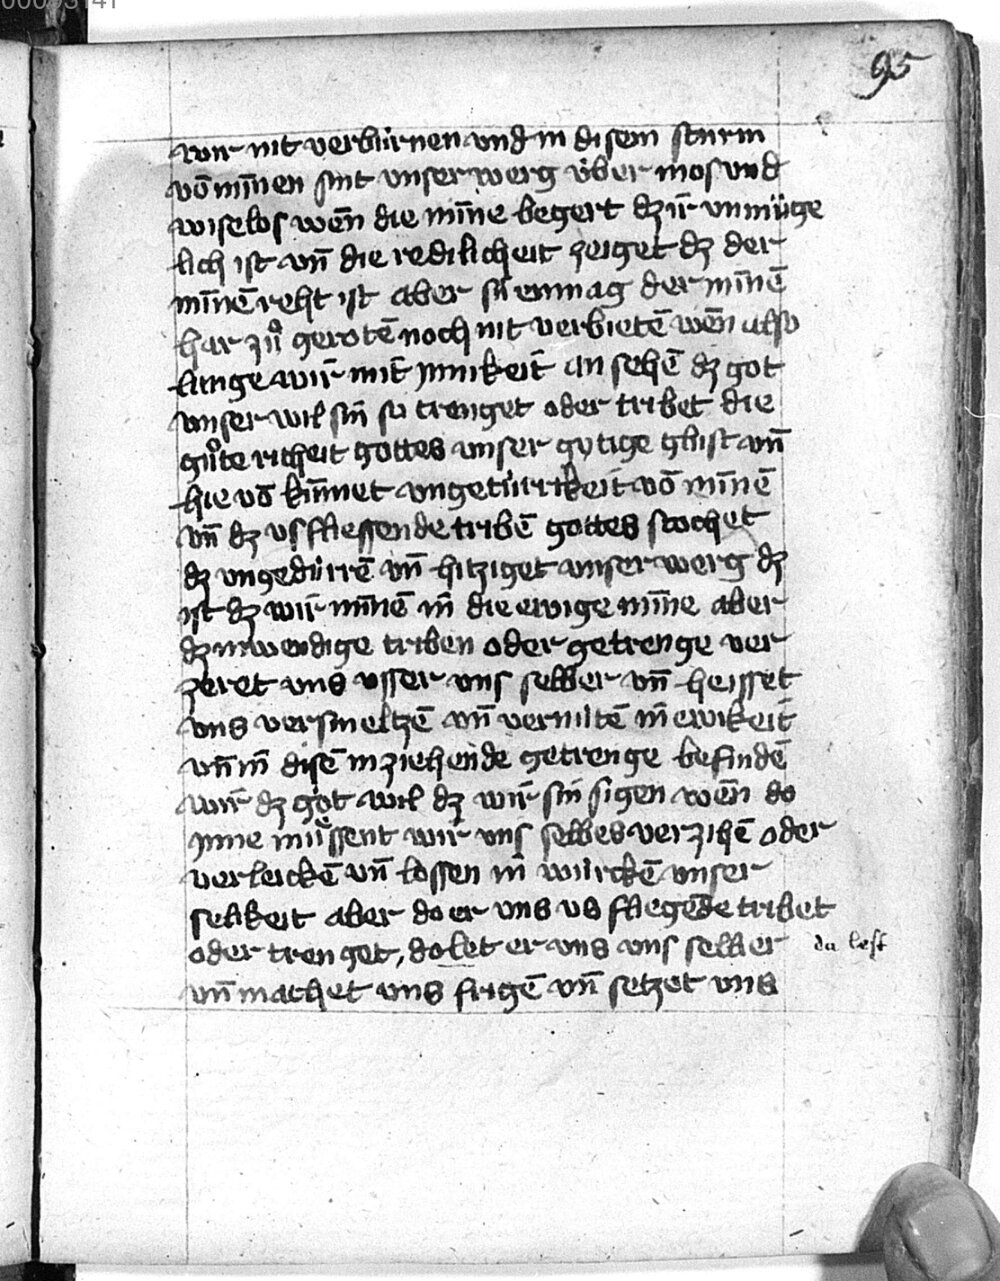 95
wir nit verbúrnen vnd in disem sturm
vō minnen sint vnser werg vber mos vnd
wiselos wēn die mīne begert dz ir vnmúge
lich ist vn̄ die redilicheit zeiget dz der
mīnē reht ist aber sú enmag der mīnē
har zuͦ geroten noch nit verbietē wēn also
lange wir mit innikeit an sehē dz got
vnser wil sin so trenget oder tribet die
guͤte richeit gottes vnser gytige glust vn̄
hie vō kūmet vngetúrikeit vō mīnē
vn̄ dz vsfliessende tribē gottes stochet
dz vngedúrrē vn̄ hitziget vnser werg dz
ist dz wir mīnē in die ewige mīne aber
dz inwendige triben oder getrenge ver
zeret vns vsser vns selber vn̄ heisset
vns versmeltzē vn̄ vernútē in ewikeit
vn̄ in disē inziehende getrenge befindē
wir dz got wil dz wir sin sigen wēn do
inne muͤssent wir vns selbes verzihē oder
verleickē vn̄ lossen in wúrckē vnser
selikeit aber do er vns vs fliegēde tribet
oder trenget, do let er vns vns selber
da lest
vn̄ machet vns frigē vn̄ setzet vns